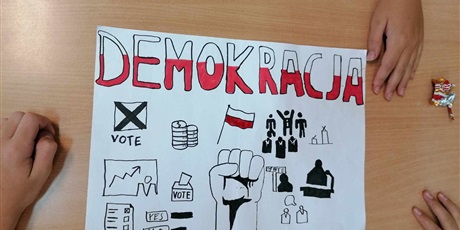 DEMOKRACJA
VOTE
VOTE
YES
NO